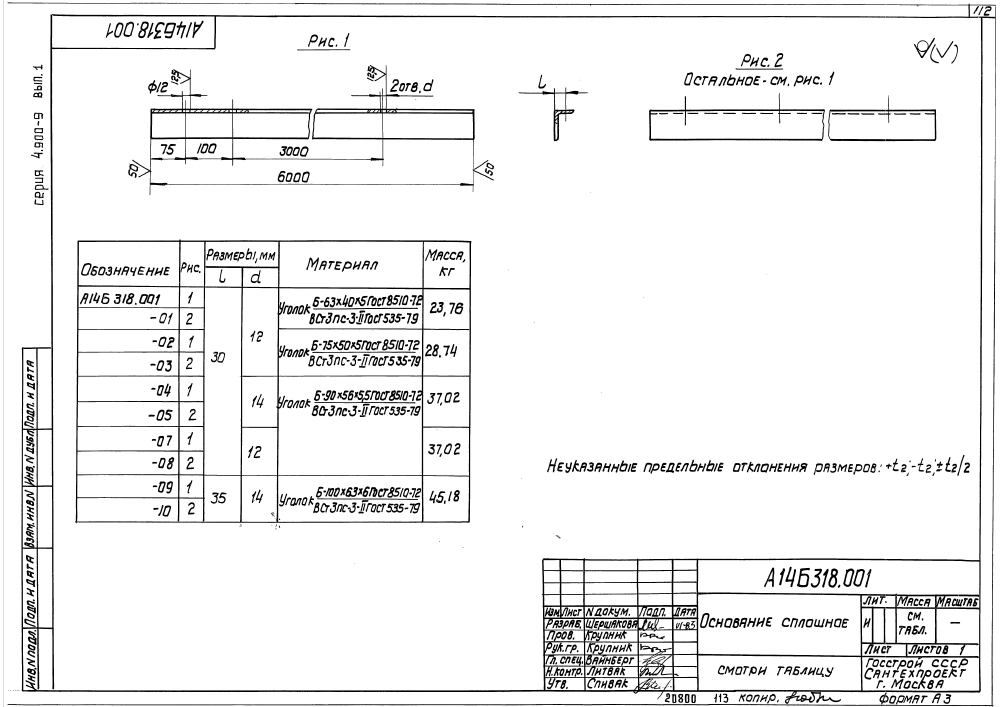 112
А14Б318.001
серия 4.900-9 вып. 1
Рис. 1
Рис. 2
Остальное - см. рис. 1
ϕ12
125
125
2 отв. d
l
75
100
3000
50
50
6000
Обозначение Рис. Размеры, мм Материал Масса, кг
l d
А14Б 318.001 1 30 12 Уголок Б-63х40х5 Гост 8510-72 / ВСт3пс-3-II Гост 535-79 23,76
-01 2
-02 1 Уголок Б-75х50х5 Гост 8510-72 / ВСт3пс-3-II Гост 535-79 28,74
-03 2
-04 1 14 Уголок Б-90х56х5,5 Гост 8510-72 / ВСт3пс-3-II Гост 535-79 37,02
-05 2
-07 1 12 37,02
-08 2
-09 1 35 14 Уголок Б-100х63х6 Гост 8510-72 / ВСт3пс-3-II Гост 535-79 45,18
-10 2
Неуказанные предельные отклонения размеров: +t2; -t2; ±t2/2
Инв. N подл. Подп. и дата Взам. инв. N Инв. N дубл. Подп. и дата
А14Б318.001
Изм. Лист N докум. Подп. Дата
Разраб. Шершакова VI-83
Пров. Крупник
Рук. гр. Крупник
Гл. спец. Вайнберг
Н. контр. Литвак
Утв. Спивак
Основание сплошное
Лит. Масса Масштаб
И см. табл. —
Лист Листов 1
смотри таблицу
Госстрой СССР
Сантехпроект
г. Москва
20800 113 копир. формат А3